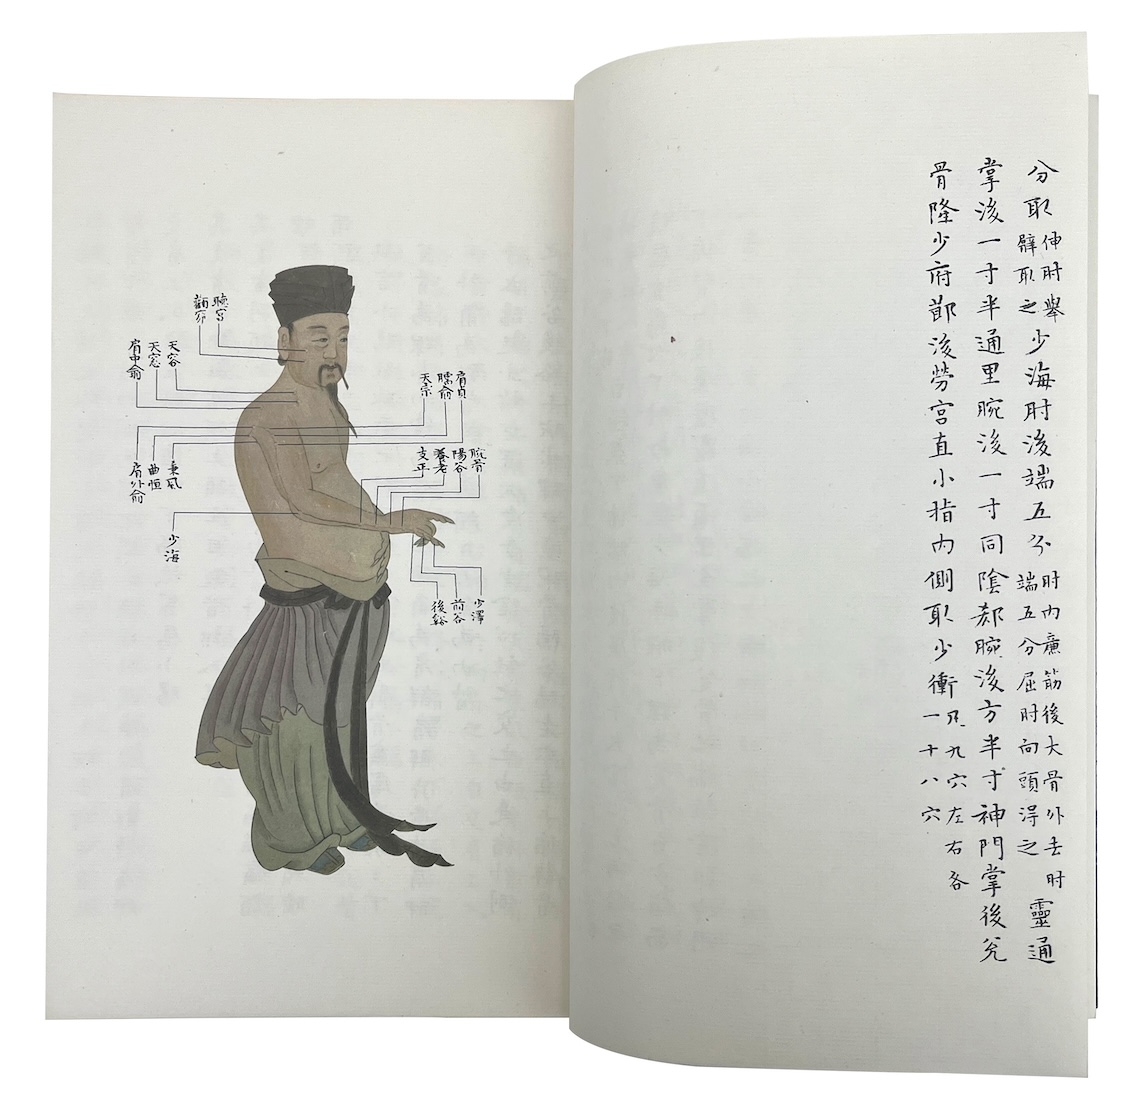 分取伸肘舉臂取之少海肘後端五分肘內廉筋後大骨外去肘端五分屈肘向頭得之靈通
掌後一寸半通里腕後一寸同陰郄腕後方半寸神門掌後兊
骨隆少府節後勞宮直小指內側取少衝凡九穴左右各一十八穴
聽宮
顴窌
天容
天窓
肩中俞
肩貞
臑俞
天宗
腕骨
陽谷
養老
支正
秉風
曲恒
肩外俞
少海
少澤
前谷
後谿